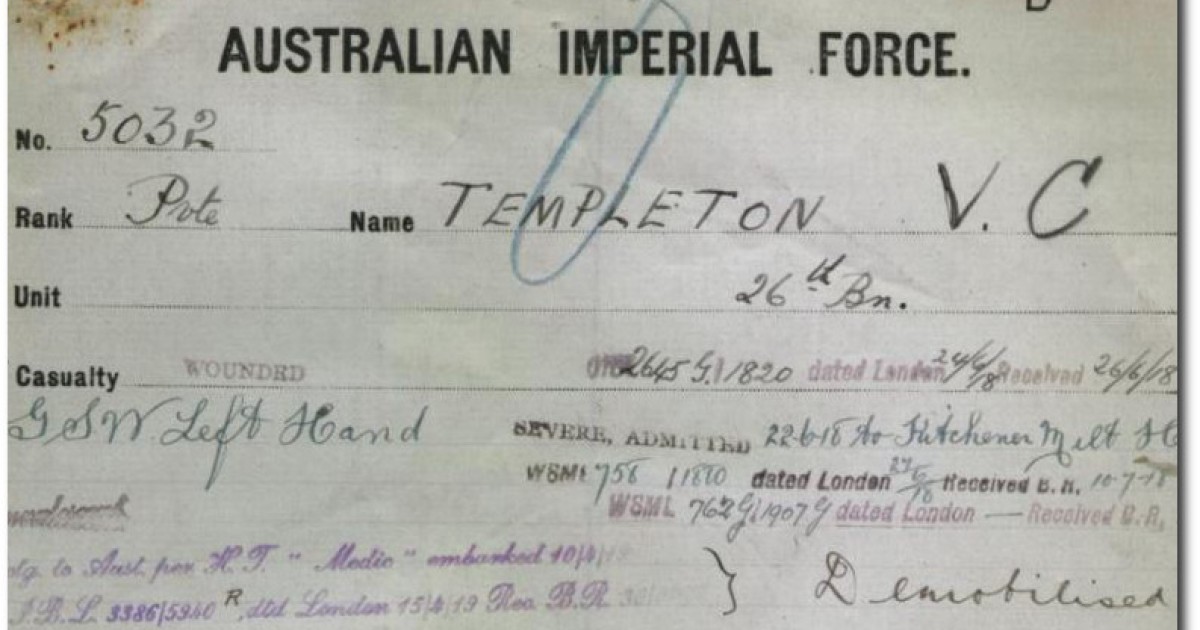 AUSTRALIAN IMPERIAL FORCE.
No. 5032
Rank Pvte Name TEMPLETON V. C
Unit 26th Bn.
Casualty WOUNDED 2645 G.1 1820 dated London 24/6/18 Received 26/6/18
G S W Left Hand SEVERE, ADMITTED 22-6-18 to Kitchener Milt
WSML 758 1880 dated London Received B.R. 10-7-18
WSML 762 G/1907 G dated London — Received B.R,
to Aust. per H.T. "Medic" embarked 10/4/19
} Demobilised
B.L. 3386/5940 R, dtd London 15/4/19 Rec B.R.